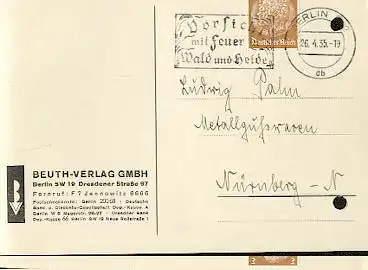 BERLIN
Vorsicht
mit Feuer in
Wald und Heide
Deutsches Reich
26. 4. 35.-19
cb
Ludwig Palm
Metallgußwaren
Nürnberg-N
BEUTH-VERLAG GMBH
Berlin SW 19 Dresdener Straße 97
Fernruf: F 7 Jannowitz 6666
Postscheckkonto: Berlin · Deutsche
Bank u. Diskonto-Gesellschaft Dep.-Kasse A
Berlin W 8 · Dresdner Bank
Dep.-Kasse 66 Berlin SW 19 Neue Roßstraße 1